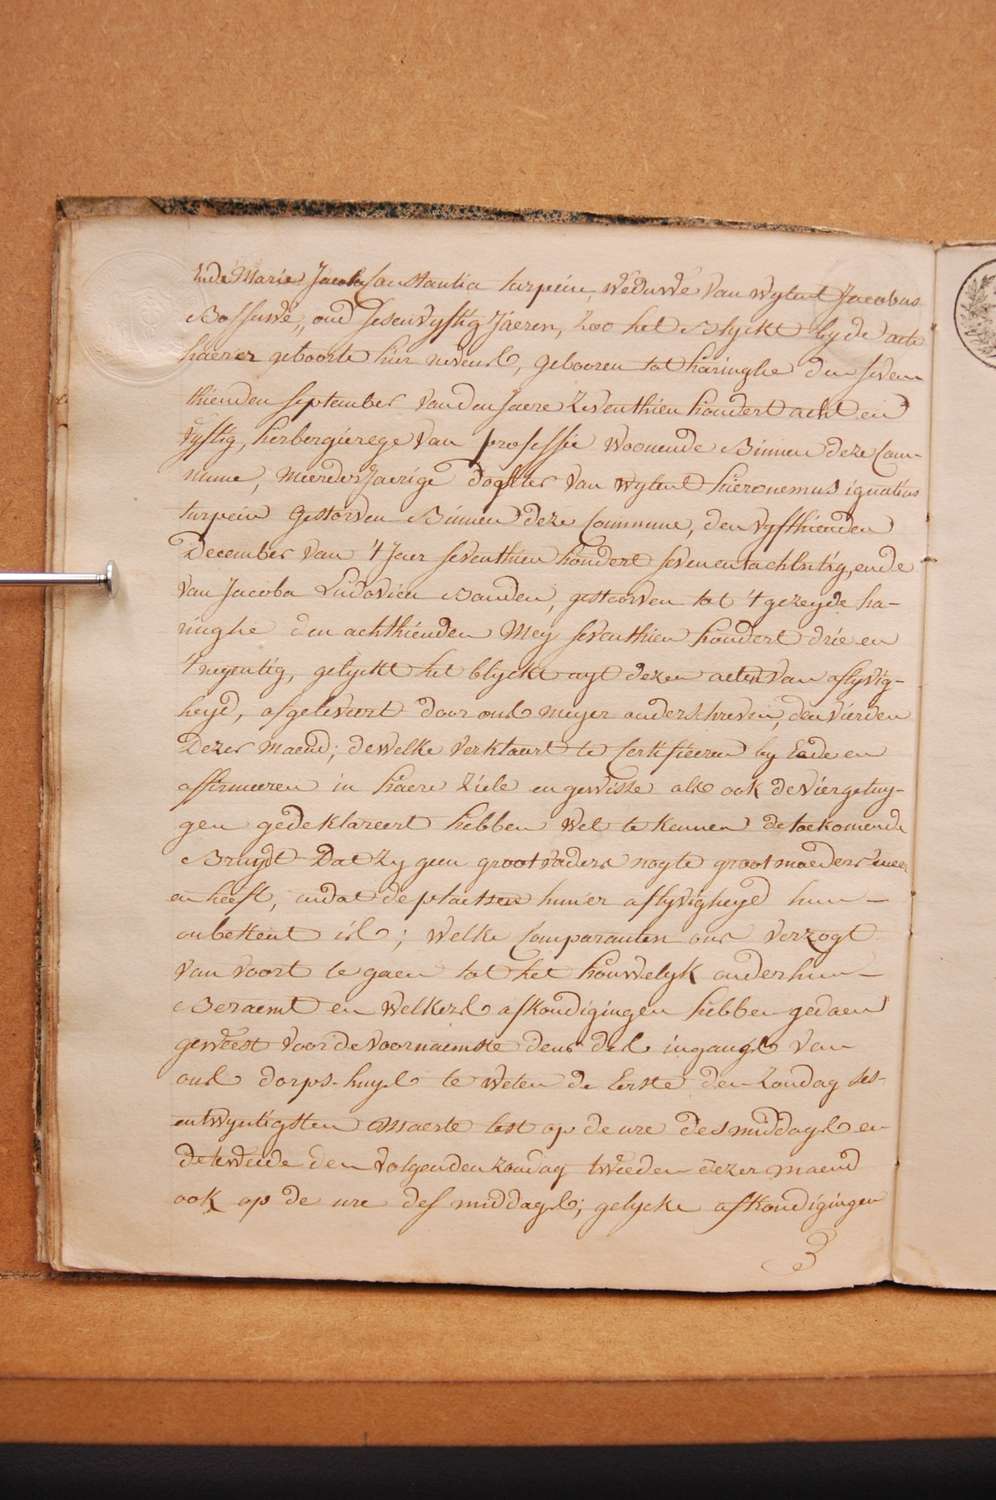 Ende Marie Jacoba Constantia turpein, Weduwe van wylent Jacobus
Bossuwe, oud sesenvyftig Jaeren, zoo het Blyckt by de acte
haerer geboorte hier nevens, gebooren tot haringhe den seven-
thienden september van den Jaere Zeventhien hondert acht en
vyftig, herbergierege van professie woonende Binnen deze Com-
mune, Meerder Jaerige dogter van wylent hieronemus ignatius
turpein Gestorven Binnen deze Commune, den vyfthienden
December van 't Jaer seventhien hondert seven en tachtntig, ende
van Jacoba Ludovica Banden, gestorven tot 't gezeyde ha-
ringhe den achthienden Mey seventhien hondert drie en
't negentig, gelyckt het blyckt uyt dezen acten van aflyvig-
heyd, afgelevert door ons Meyer onderschreven, den vierden
Dezer maend; dewelke verklaert te Certifieeren by Eede en
affirmeeren in haere Ziele en gewisse als ook de vier getuy-
gen gedeklareert hebben wel te kennen de toekomende
Bruyd Dat zy geen grootvaders nogte grootmoeders meer
en heeft, en dat de plaetsen hunner aflyvigheyd hun
onbekent is; welke Comparanten ons verzogt
van voort te gaen tot het houwelyk onder hun
Beraemt en welkers afkondigingen hebben gedaen
geweest voor de voornaemste deur des ingangs van
ons dorps-huys te weten de Eerste den Zondag ses-
entwyntigsten Maerte lest op de ure des middags en
de tweede den volgenden zondag tweeden dezer maend
ook op de ure des middags; gelycke afkondigingen
3